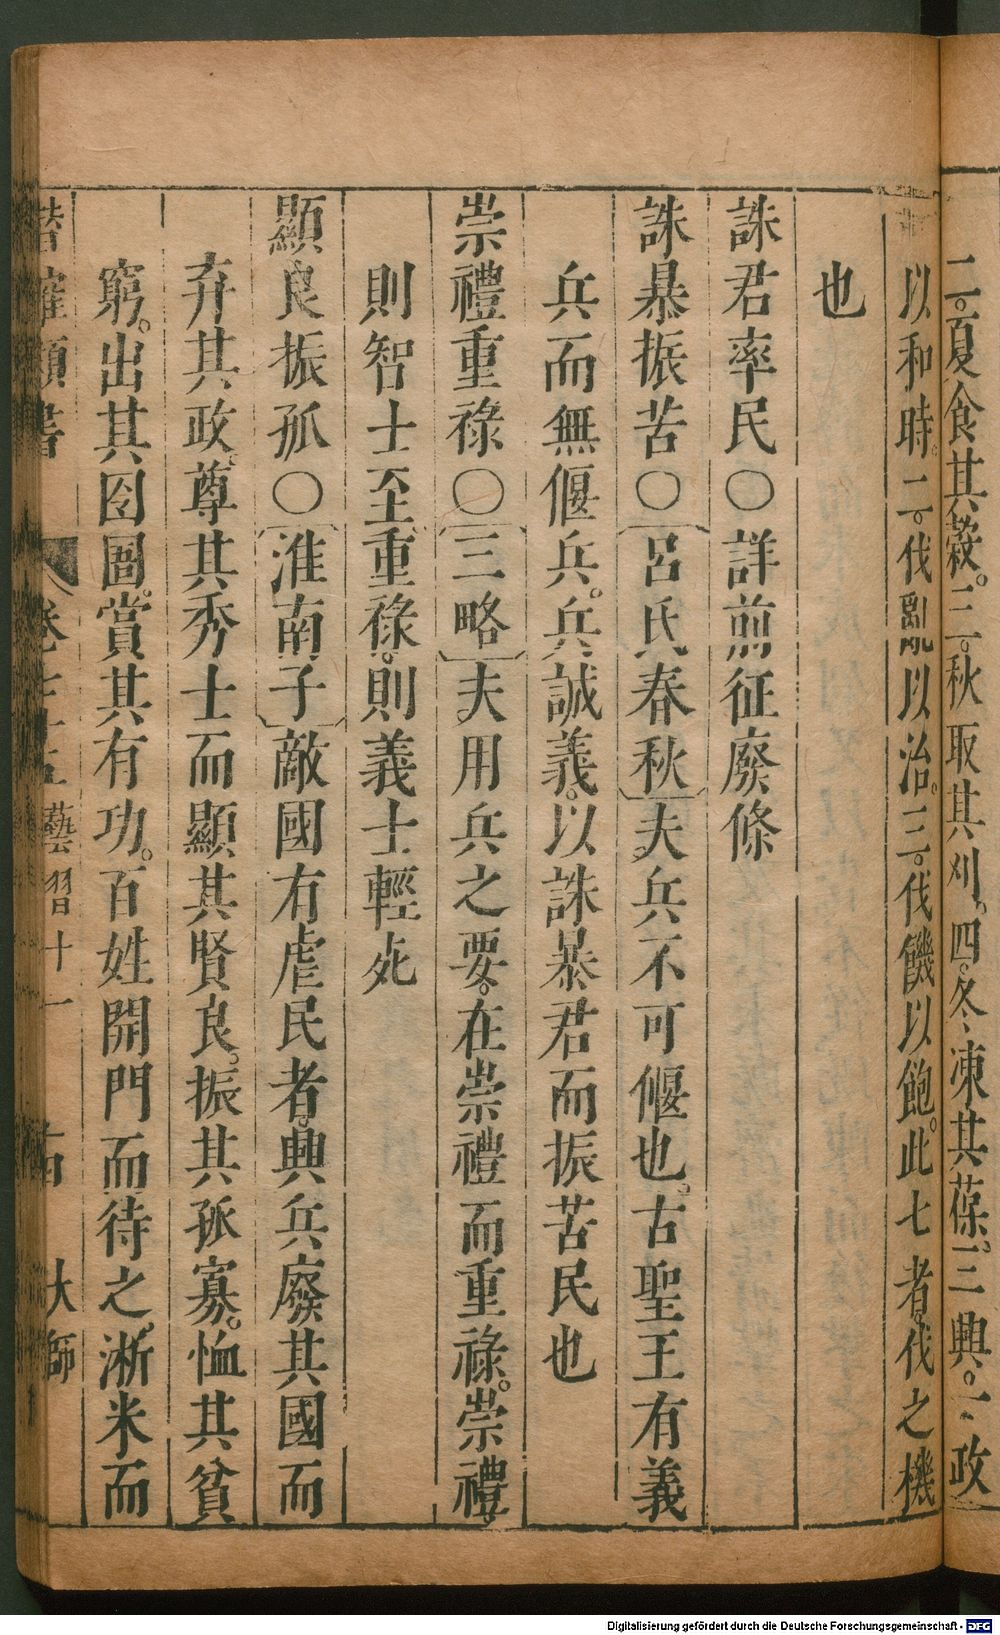 二。夏食其穀。三。秋取其刈。四。冬凍其葆。三興。一。政
以和時。二。伐亂以治。三。伐饑以飽。此七者。伐之機
也
誅君率民〇詳前征廢條
誅暴振苦〇呂氏春秋夫兵不可偃也。古聖王有義
兵而無偃兵。兵誠義。以誅暴君而振苦民也
崇禮重祿〇三略夫用兵之要。在崇禮而重祿。崇禮。
則智士至。重祿。則義士輕死
顯良振孤〇淮南子敵國有虐民者。興兵廢其國而
弃其政。尊其秀士而顯其賢良。振其孤寡。恤其貧
窮。出其囹圄。賞其有功。百姓開門而待之。淅米而
類書 卷七十五 藝習十一 大師
Digitalisierung gefördert durch die Deutsche Forschungsgemeinschaft - DFG